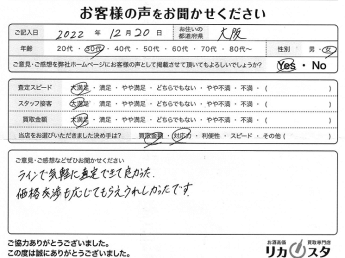 お客様の声をお聞かせください
ご記入日 2022年12月20日 お住いの都道府県 大阪
年齢 20代・30代・40代・50代・60代・70代・80代〜 性別 男・女
ご意見・ご感想を弊社ホームページにお客様の声として掲載させて頂いてもよろしいでしょうか? Yes・No
査定スピード 大満足・満足・やや満足・どちらでもない・やや不満・不満・( )
スタッフ接客 大満足・満足・やや満足・どちらでもない・やや不満・不満・( )
買取金額 大満足・満足・やや満足・どちらでもない・やや不満・不満・( )
当店をお選びいただきました決め手は? 買取金額・対応力・利便性・スピード・その他( )
ご意見・ご感想などぜひお聞かせください
ラインで気軽に査定できて良かった。
価格交渉も応じてもらえうれしかったです。
ご協力ありがとうございました。
この度は誠にありがとうございました。
お酒高価買取専門店
リカスタ